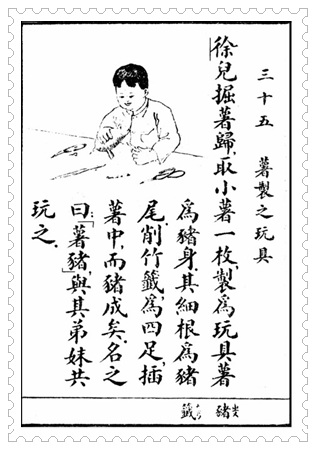 三十五　薯製之玩具
徐兒掘薯歸、取小薯一枚、製爲玩具、薯
爲豬身、其細根爲豬
尾、削竹籤、爲四足、插
薯中、而豬成矣、名之
曰「薯豬」、與其弟妹共
玩之。
豬
籤